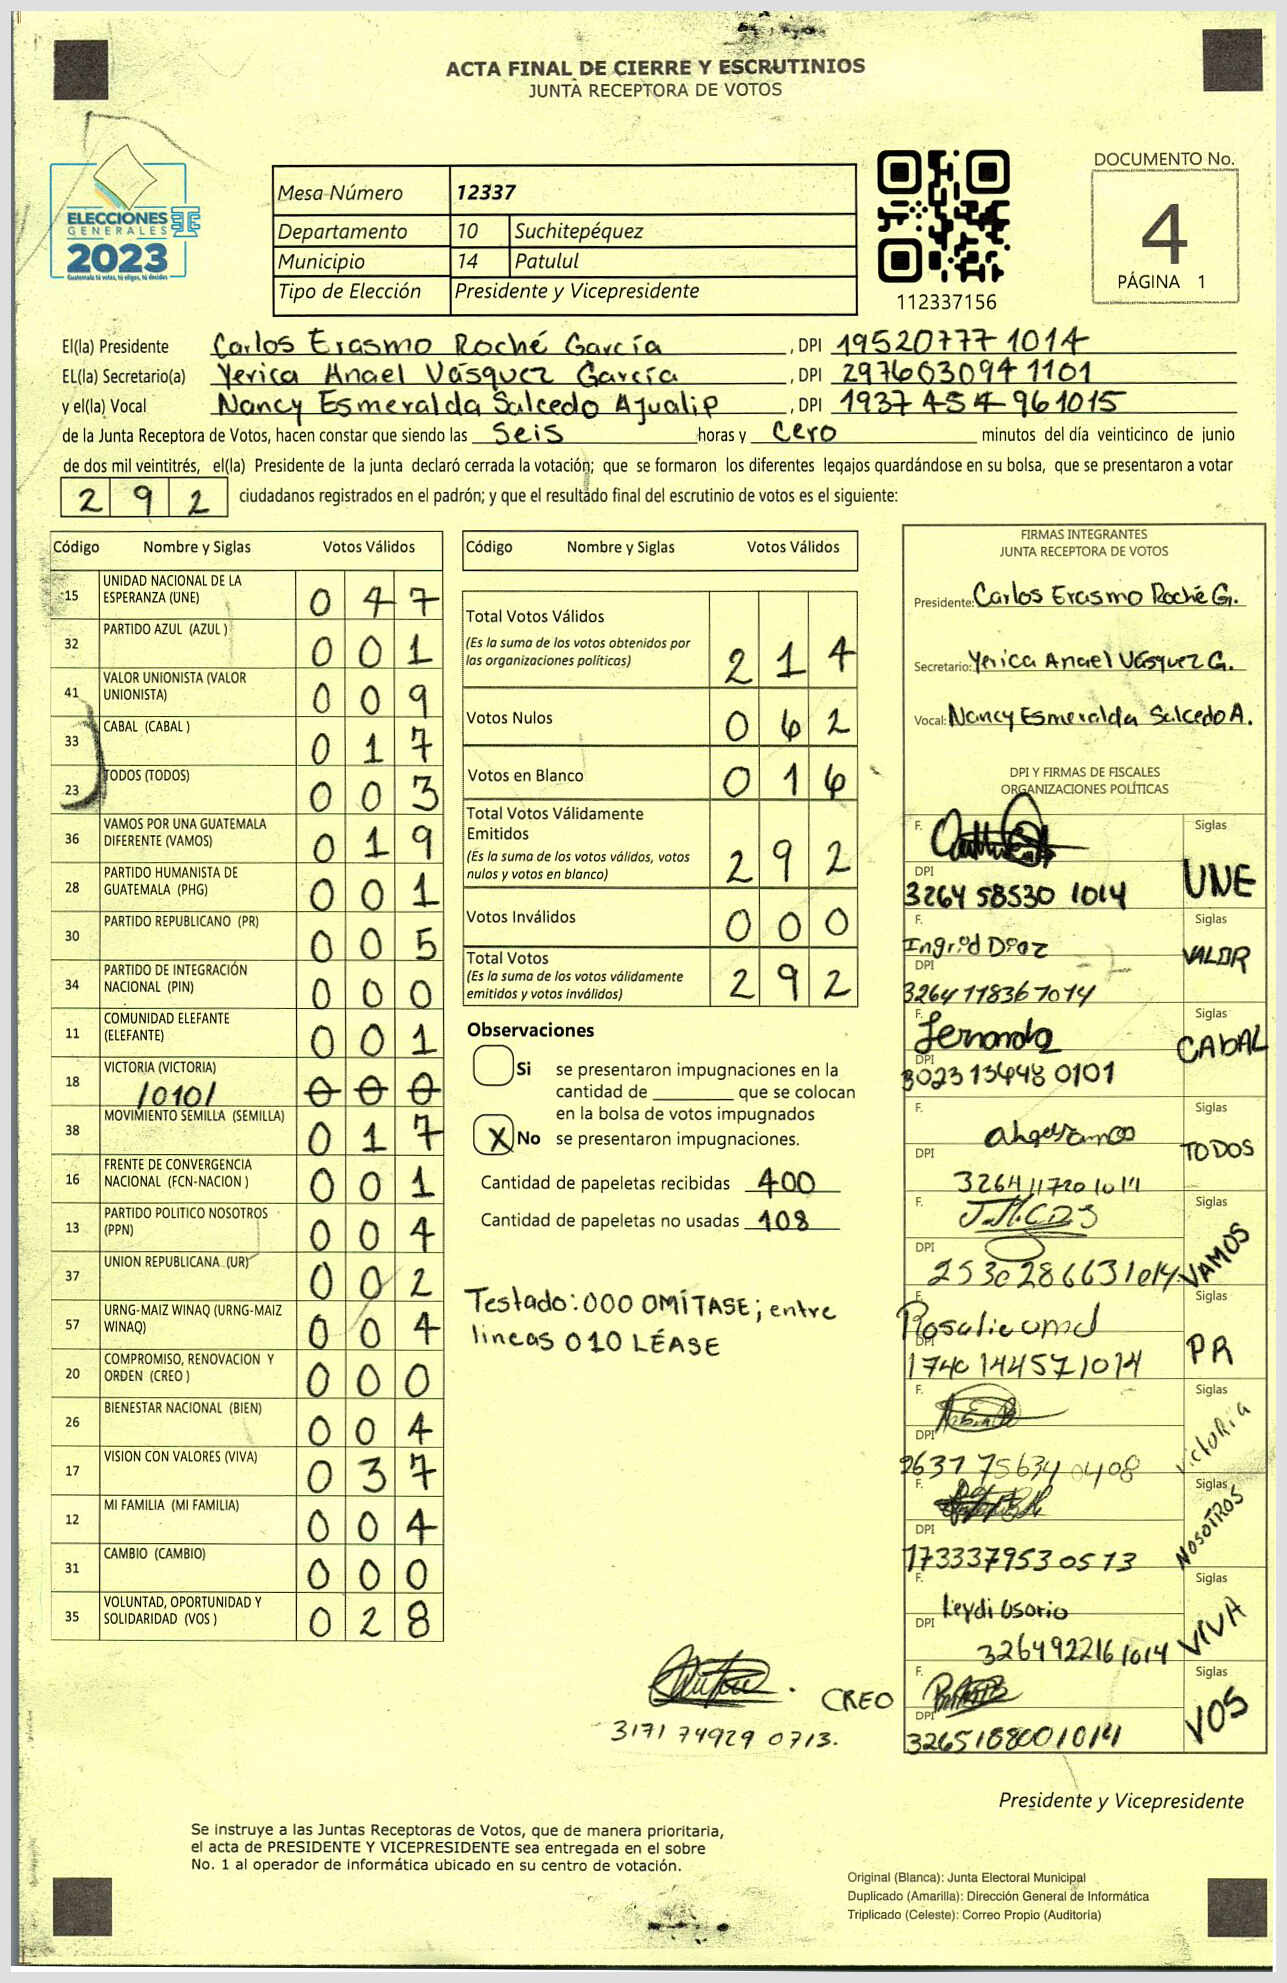 ACTA FINAL DE CIERRE Y ESCRUTINIOS
JUNTA RECEPTORA DE VOTOS
ELECCIONES
GENERALES
2023
Guatemala tú votas, tú eliges, tú decides
Mesa Número 12337
Departamento 10 Suchitepéquez
Municipio 14 Patulul
Tipo de Elección Presidente y Vicepresidente
112337156
DOCUMENTO No.
4
PÁGINA 1
El(la) Presidente Carlos Erasmo Roché García, DPI 19520777 1014
EL(la) Secretario(a) Yerica Anael Vásquez García, DPI 297603094 1101
y el(la) Vocal Nancy Esmeralda Salcedo Ajualip, DPI 1937 454 961015
de la Junta Receptora de Votos, hacen constar que siendo las seis horas y cero minutos del día veinticinco de junio
de dos mil veintitrés, el(la) Presidente de la junta declaró cerrada la votación; que se formaron los diferentes legajos guardándose en su bolsa, que se presentaron a votar
292 ciudadanos registrados en el padrón; y que el resultado final del escrutinio de votos es el siguiente:
Código Nombre y Siglas Votos Válidos
15 UNIDAD NACIONAL DE LA ESPERANZA (UNE) 0 4 7
32 PARTIDO AZUL (AZUL ) 0 0 1
41 VALOR UNIONISTA (VALOR UNIONISTA) 0 0 9
33 CABAL (CABAL ) 0 1 7
23 TODOS (TODOS) 0 0 3
36 VAMOS POR UNA GUATEMALA DIFERENTE (VAMOS) 0 1 9
28 PARTIDO HUMANISTA DE GUATEMALA (PHG) 0 0 1
30 PARTIDO REPUBLICANO (PR) 0 0 5
34 PARTIDO DE INTEGRACIÓN NACIONAL (PIN) 0 0 0
11 COMUNIDAD ELEFANTE (ELEFANTE) 0 0 1
18 VICTORIA (VICTORIA) /010/ 0 0 0
38 MOVIMIENTO SEMILLA (SEMILLA) 0 1 7
16 FRENTE DE CONVERGENCIA NACIONAL (FCN-NACION ) 0 0 1
13 PARTIDO POLITICO NOSOTROS (PPN) 0 0 4
37 UNION REPUBLICANA (UR) 0 0 2
57 URNG-MAIZ WINAQ (URNG-MAIZ WINAQ) 0 0 4
20 COMPROMISO, RENOVACION Y ORDEN (CREO ) 0 0 0
26 BIENESTAR NACIONAL (BIEN) 0 0 4
17 VISION CON VALORES (VIVA) 0 3 7
12 MI FAMILIA (MI FAMILIA) 0 0 4
31 CAMBIO (CAMBIO) 0 0 0
35 VOLUNTAD, OPORTUNIDAD Y SOLIDARIDAD (VOS ) 0 2 8
Código Nombre y Siglas Votos Válidos
Total Votos Válidos 2 1 4
(Es la suma de los votos obtenidos por
las organizaciones políticas)
Votos Nulos 0 6 2
Votos en Blanco 0 1 6
Total Votos Válidamente
Emitidos 2 9 2
(Es la suma de los votos válidos, votos
nulos y votos en blanco)
Votos Inválidos 0 0 0
Total Votos 2 9 2
(Es la suma de los votos válidamente
emitidos y votos inválidos)
Observaciones
Si se presentaron impugnaciones en la
cantidad de ________ que se colocan
en la bolsa de votos impugnados
X No se presentaron impugnaciones.
Cantidad de papeletas recibidas 400
Cantidad de papeletas no usadas 108
Testado: 000 OMÍTASE; entre
lineas 010 LÉASE
CREO
3171 74929 0713.
FIRMAS INTEGRANTES
JUNTA RECEPTORA DE VOTOS
Presidente: Carlos Erasmo Roché G.
Secretario: Yerica Anael Vásquez G.
Vocal: Nancy Esmeralda Salcedo A.
DPI Y FIRMAS DE FISCALES
ORGANIZACIONES POLÍTICAS
F. Siglas
DPI 3264 58530 1014 UNE
F. Ingrid Diaz Siglas
DPI 3264 118367014 VALOR
F. Fernanda Siglas
DPI 3023 13448 0101 CABAL
F. Siglas
DPI 3264117201014 TODOS
F. J.M.C.D.S Siglas
DPI 2530286631014 VAMOS
F. Siglas
DPI 1740144571014 PR
F. Siglas
DPI 2637 75634 0408 VICTORIA
F. Siglas
DPI 1733379530513 NOSOTROS
F. Leydi Osorio Siglas
DPI 326492216 1014 VIVA
F. Siglas
DPI 3265188001014 VOS
Presidente y Vicepresidente
Se instruye a las Juntas Receptoras de Votos, que de manera prioritaria,
el acta de PRESIDENTE Y VICEPRESIDENTE sea entregada en el sobre
No. 1 al operador de informática ubicado en su centro de votación.
Original (Blanca): Junta Electoral Municipal
Duplicado (Amarilla): Dirección General de Informática
Triplicado (Celeste): Correo Propio (Auditoría)